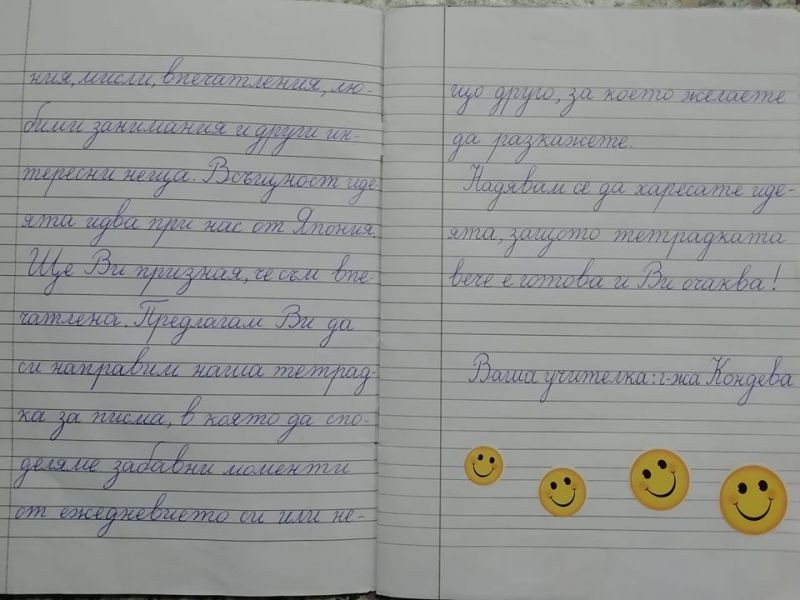 ния, мисли, впечатления, лю-
бими занимания и други ин-
тересни неща. Всъщност иде-
ята идва при нас от Япония.
Ще Ви призная, че съм впе-
чатлена. Предлагам Ви да
си направим наша тетрад-
ка за писма, в която да спо-
деляме забавни моменти
от ежедневието си или не-
що друго, за което желаете
да разкажете.
Надявам се да харесате иде-
ята, защото тетрадката
вече е готова и Ви очаква!
Ваша учителка: г-жа Кондева